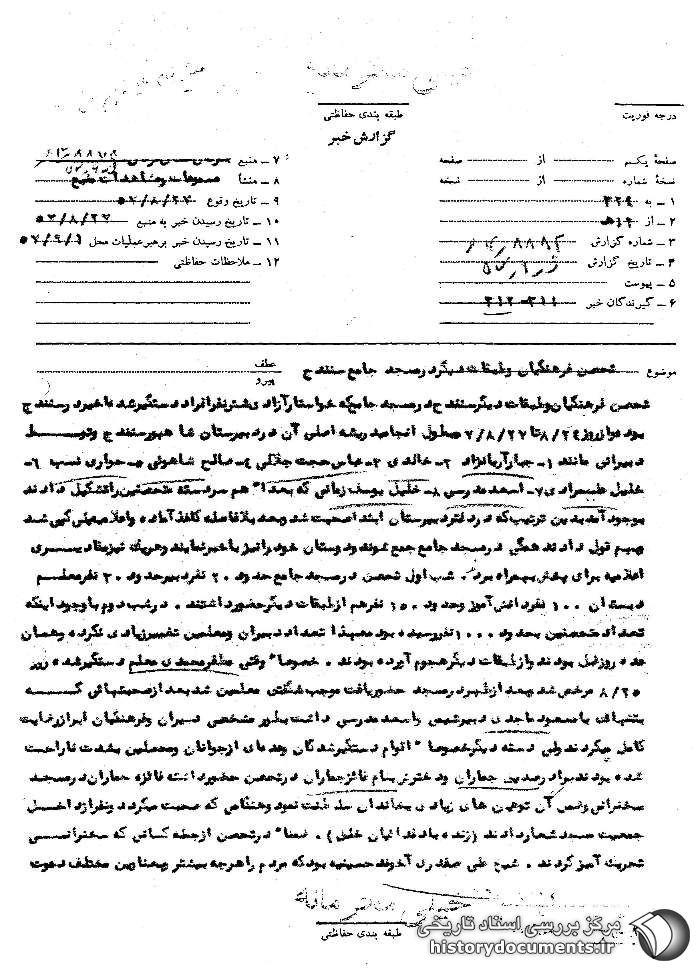 طبقه بندی حفاظتی
درجه فوریت
گزارش خبر
صفحهٔ یکم از صفحه
نسخهٔ شماره از نسخه
۱ ــ به ۳۲۹
۲ ــ از
۳ ــ شماره گزارش
۴ ــ تاریخ گزارش
۵ ــ پیوست
۶ ــ گیرندگان خبر ۳۱۱-۳۱۲
۷ ــ منبع
۸ ــ منشأ مسموعات و مشاهدات منبع
۹ ــ تاریخ وقوع ۵۷/۸/۲۷
۱۰ ــ تاریخ رسیدن خبر به منبع ۵۷/۸/۲۷
۱۱ ــ تاریخ رسیدن خبر برهبر عملیات محل ۵۷/۹/۱
۱۲ ــ ملاحظات حفاظتی
موضوع تحصن فرهنگیان وطبقات دیگر در مسجد جامع سنندج
عطف
پیرو
تحصن فرهنگیان وطبقات دیگر سنندج در مسجد جامع که خواستار آزادی شش نفر افراد دستگیر شده اخیر در سنندج
بود از روز ۸/۲۴ تا ۷/۸/۲۷ بطول انجامید ریشه اصلی آن در دبیرستان شاهپور سنندج وتوسط
دبیرانی مانند ۱ـ جبار آریانژاد ۲ـ خالدی ۳ـ عباس حجت جلالی ۴ـ صالح شاهوئی ۵ـ حواری نسب ۶ـ
خلیل ۷ـ اسعد مدرسی ۸ـ خلیل یوسف زمانی که بعدا" هم سردسته متحصنین را تشکیل دادند
بوجود آمد بدین ترتیب که در دفتر دبیرستان ابتدا صحبت شد وبعد بلافاصله کاغذ آماده واعلامیه ئی کپی شد
وبهم قول دادند همگی در مسجد جامع جمع شوند ودوستان خود را نیز باخبر نمایند وهریک نیز مقادیری
اعلامیه برای پخش بهمراه برد . شب اول تحصن در مسجد جامع حدود ۲۰ نفر دبیر حدود ۳۰ نفر معلم
دبستان ۱۰۰ نفر دانش آموز وحدود ۱۵۰ نفر هم از طبقات دیگر حضور داشتند . در شب دوم با وجود اینکه
تعداد متحصنین بحدود ۱۰۰۰ نفر رسیده بود معهذا تعداد دبیران ومعلمین تغییر زیادی نکرده وهمان
حدود روز قبل بودند واز طبقات دیگر هجوم آورده بودند . خصوصا" وقتی مظفر محمدی معلم دستگیر شده روز
۸/۲۵ مرخص شد وبعد از ظهر در مسجد حضور یافت موجب شگفتی معلمین شد بعد از صحبتهائی که
بتنهائی با مسعود ماجدی دبیر شیمی واسعد مدرسی داشت بطور مشخصی دبیران وفرهنگیان ابراز رضایت
کامل میکردند ولی دسته دیگر خصوصا" اقوام دستگیر شدگان وعده ای از جوانان ومحصلین بشدت ناراحت
شده بودند برادر صدیق جماران ودخترش بنام فائز جماران در تحصن حضور داشته فائزه جماران در مسجد
سخنرانی وضمن آن توهین های زیادی بخاندان سلطنت نمود وهنگامی که صحبت میکرد دو نفر از داخل
جمعیت مسجد شعار دادند (زنده باد فدائیان خلق) . ضمنا" در تحصن از جمله کسانی که سخنرانی
تحریک آمیز کردند . شیخ علی صفدری آخوند حسینیه بود که مردم را هرچه بیشتر وبعناوین مختلف دعوت
طبقه بندی حفاظتی
مرکز بررسی اسناد تاریخی
historydocuments.ir